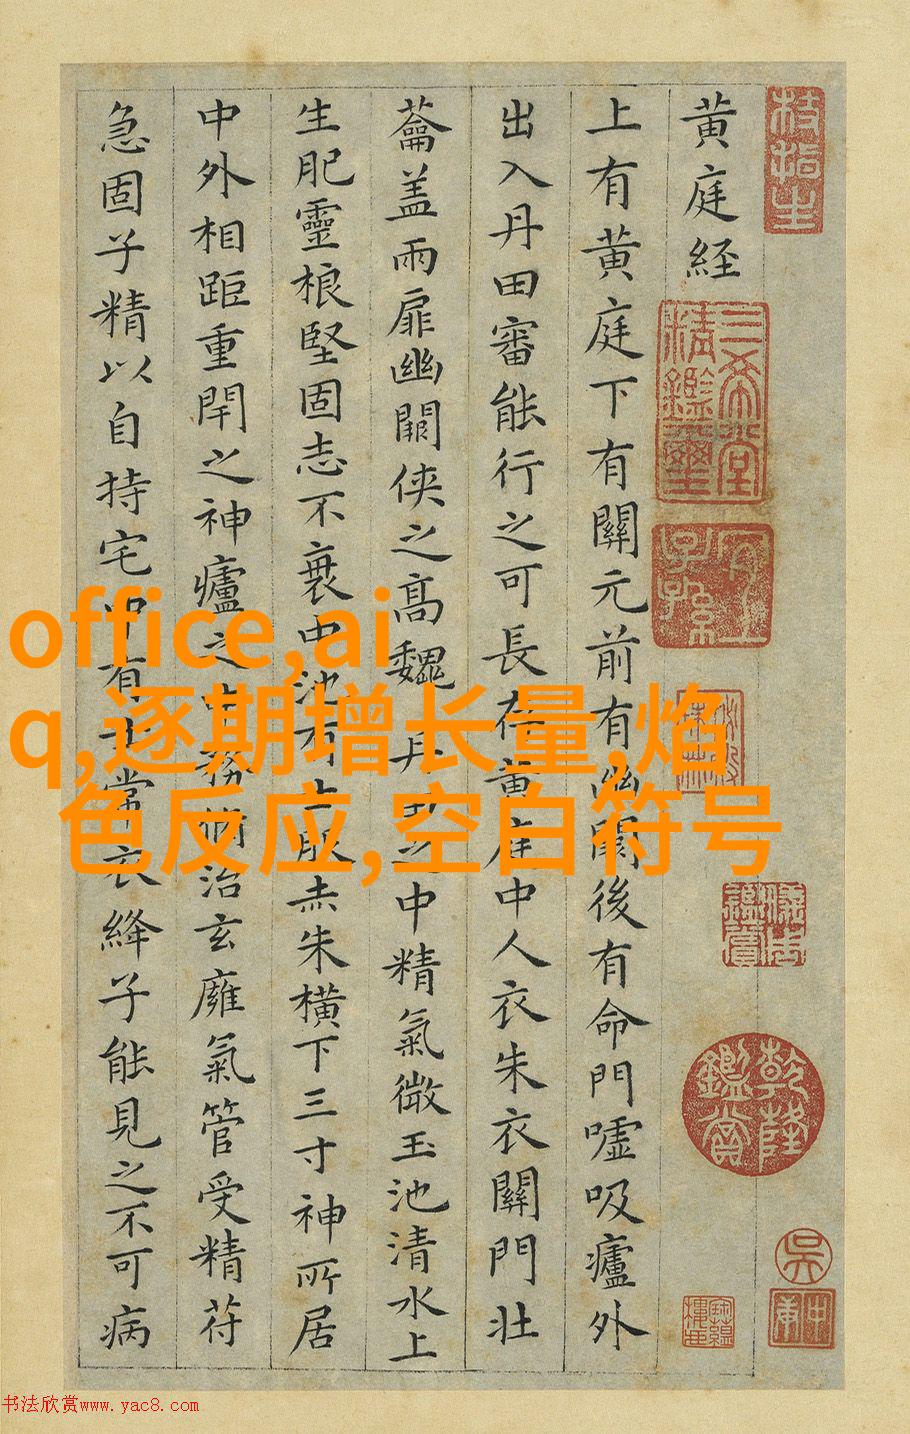 枝指生
黄庭経
三希堂精鑑璽
宜子孫
乾隆鑑賞
吳
上有黄庭下有關元前有幽闕後有命門嘘吸廬外
出入丹田審能行之可長存黄庭中人衣朱衣關門壮
蘥盖兩扉幽闕侠之高魏丹田之中精氣微玉池清水上
生肥靈根堅固志不衰中池有士服赤朱横下三寸神所居
中外相距重閇之神廬之中務脩治玄廱氣管受精苻
急固子精以自持宅中有士常衣絳子能見之不可病
office,ai
q,逐期增长量,焰
色反应,空白符号
书法欣赏www.yac8.com